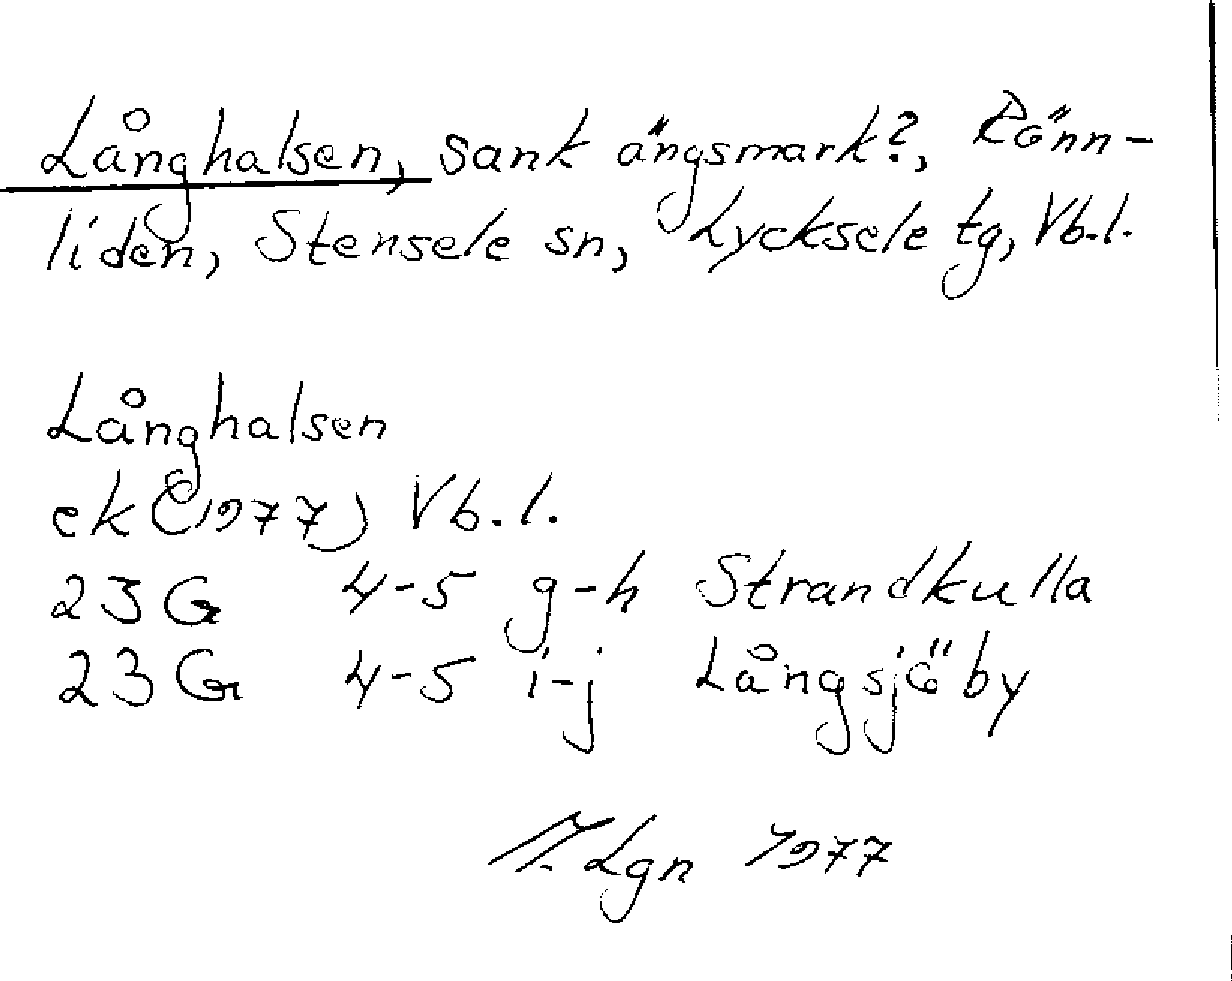 Långhalsen, sank ängsmark?, Rönn-
liden, Stensele sn, Lycksele tg, Vb.l.
Långhalsen
ek (1977) Vb.l.
23G 4-5 g-h Strandkulla
23G 4-5 i-j Långsjöby
Lgn 1977